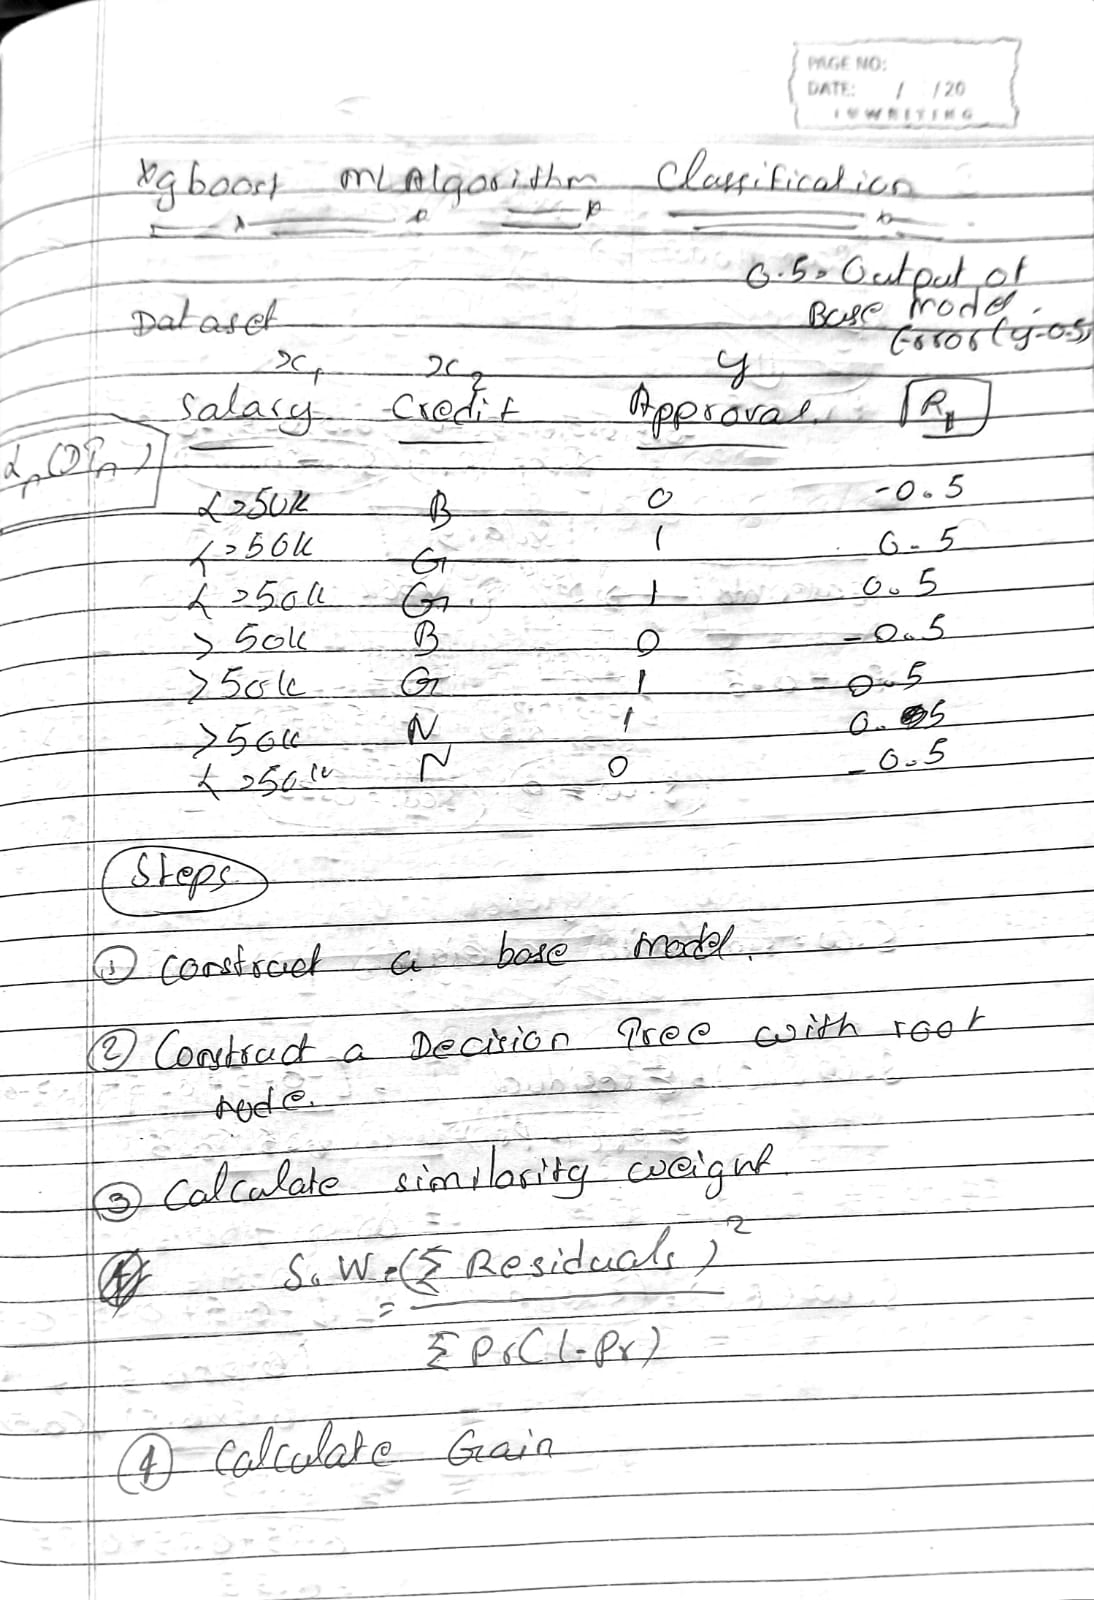 PAGE NO:
DATE: / /20
Xgboost ML Algorithm Classification
0.5 = Output of
Base model.
Error (y-0.5)
Dataset
x1 x2 y
Salary Credit Approval R1
<=50K B 0 -0.5
<=50K G 1 0.5
<=50K G 1 0.5
>50K B 0 -0.5
>50K G 1 0.5
>50K N 1 0.5
<=50K N 0 -0.5
Steps
① Construct a base model.
② Construct a Decision Tree with root
node.
③ Calculate similarity weight
S.W = (Σ Residuals)²
Σ Pr(1-Pr)
④ Calculate Gain